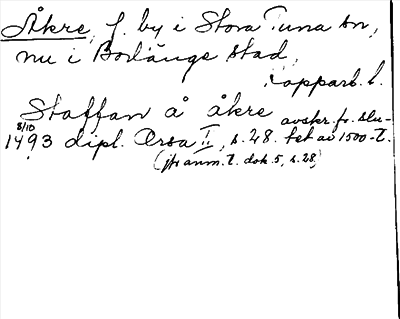 Åkre, f. by i Stora Tuna sn,
nu i Borlänge stad,
Kopparb. l.
Staffan å åkre avskr. fr. slu-
8/10
1493 dipl. Orsa II, s. 48. tet av 1500-t.
(jfr anm. t. dok. 5, s. 28)